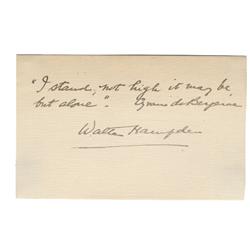 "I stand, not high it may be,
but alone". Cyrano de Bergerac
Walter Hampden